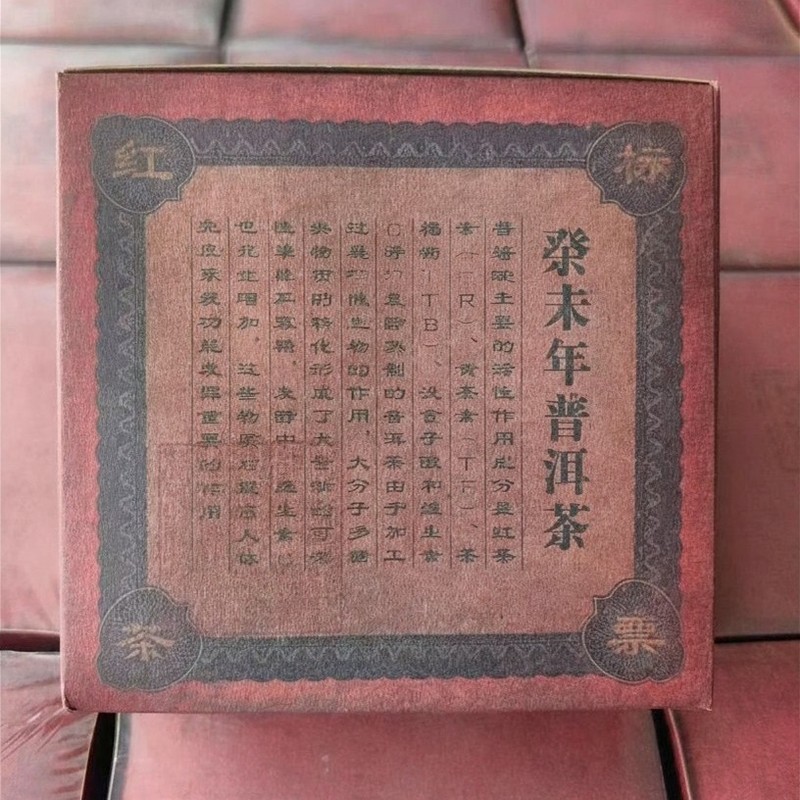 红
标
癸未年普洱茶
普洱茶主要的活性作用成分是红茶
素(TR)、黄茶素(TF)、茶
褐素(TB)、没食子酸和维生素
C等。发酵熟制的普洱茶由于加工
过程 微生物的作用，大分子多糖
类物质的转化形成了大量新的可溶
性单糖和寡糖，发酵中，维生素C
也成倍增加，这些物质对提高人体
免疫系统功能发挥重要的作用
茶
票